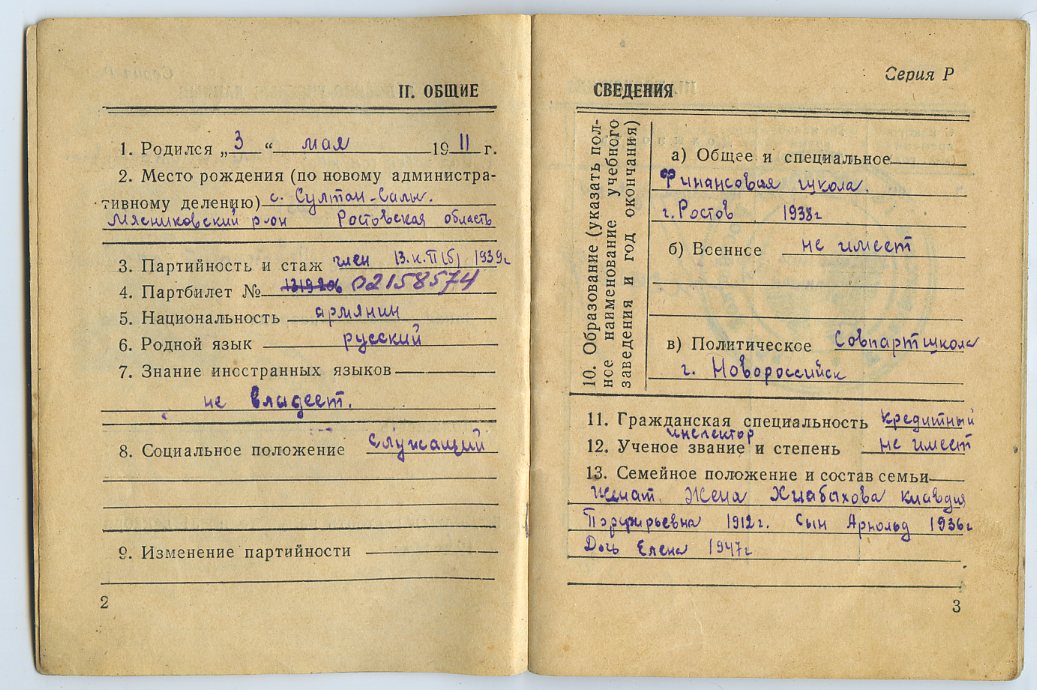 II. ОБЩИЕ
1. Родился „3“ мая 1911 г.
2. Место рождения (по новому администра-
тивному делению) с. Султан-Салы.
Мясниковский р-он Ростовская область
3. Партийность и стаж член В.К.П(б) 1939г
4. Партбилет № 02158574
5. Национальность армянин
6. Родной язык русский
7. Знание иностранных языков
не владеет.
8. Социальное положение служащий
9. Изменение партийности
2
Серия Р
СВЕДЕНИЯ
10. Образование (указать пол-
ное наименование учебного
заведения и год окончания)
а) Общее и специальное
Финансовая школа.
г. Ростов 1938г
б) Военное не имеет
в) Политическое Совпартшкола
г. Новороссийск
11. Гражданская специальность кредитный
инспектор
12. Ученое звание и степень не имеет
13. Семейное положение и состав семьи
Женат. Жена Клавдия
Порфирьевна 1912г. Сын Арнольд 1936г
Дочь Елена 1947г
3